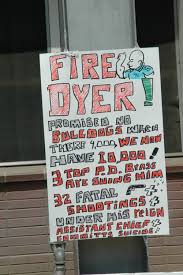 FIRE
DYER!
PROMISED NO
BULLDOGS WHEN
THERE 9,000, WE NOW
HAVE 10,000!
3 TOP P.D. BRASS
ARE SUING HIM
32 FATAL
SHOOTINGS
UNDER HIS REIGN
ASSISTANT CHIEF
COMMITTS SUICIDE!